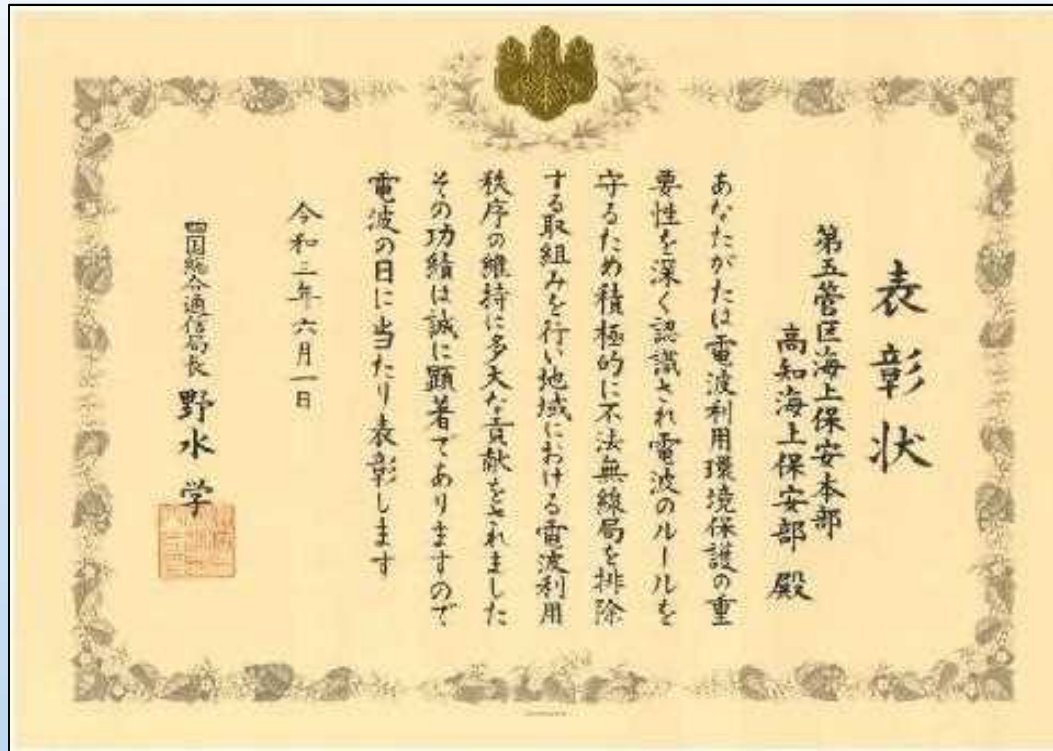 表彰状
第五管区海上保安本部
高知海上保安部 殿
あなたがたは電波利用環境保護の重
要性を深く認識され電波のルールを
守るため積極的に不法無線局を排除
する取組みを行い地域における電波利用
秩序の維持に多大な貢献をされました
その功績は誠に顕著でありますので
電波の日に当たり表彰します
令和三年六月一日
四国総合通信局長 野水 学